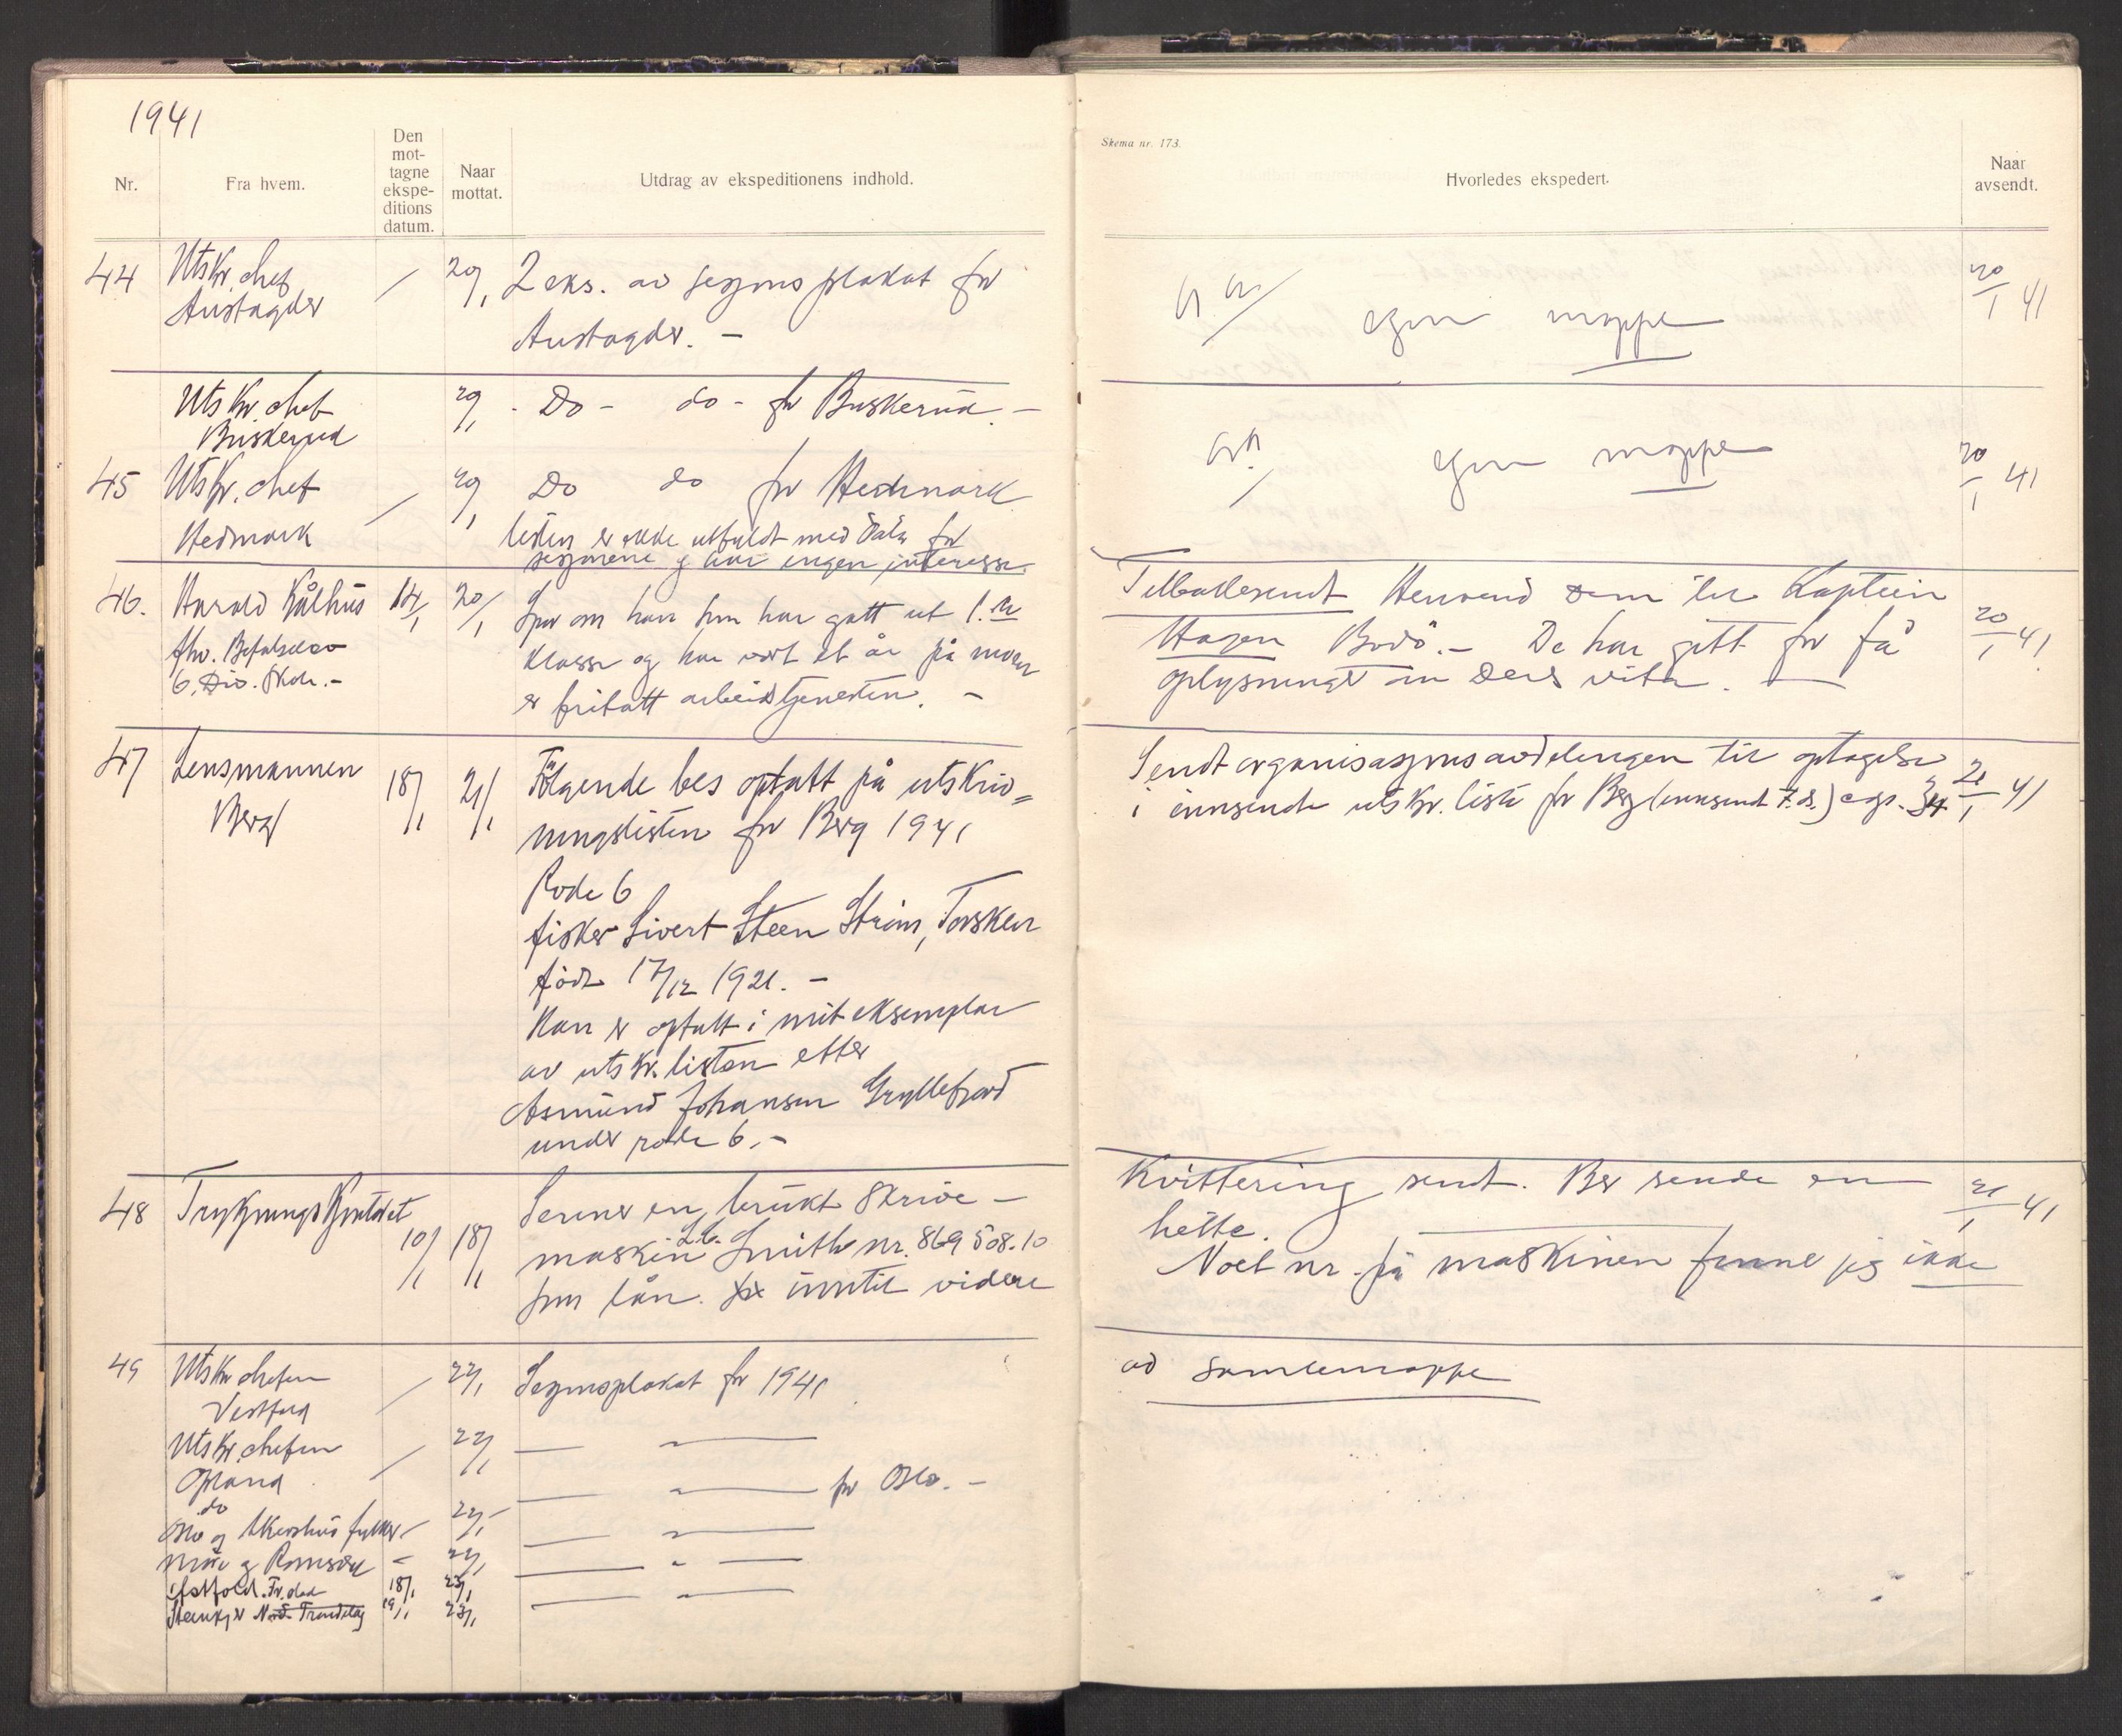 1941
Nr.
Fra hvem.
Den
mot-
tagne
ekspe-
ditions
datum.
Naar
mottat.
Utdrag av ekspeditionens indhold.
44
Utskr. chef
Austagder
20/1
2 eks. av sesjons plakat for
Austagder. -
Utskr. chef
Buskerud
20/1
Do - do - for Buskerud. -
45
Utskr. chef
Hedmark
20/1
Do do for Hedmark
listen er ikke utfyldt med data for
sesjonene og har ingen interesse.
46.
Harald Kålhus
14/1
20/1
fhv. Befalselev
6. Div. Skole. -
Spør om han som har gått ut 1.
klasse og har vært et år på
er fritatt arbeidstjenesten. -
47
Lensmannen
Berg
18/1
21/1
Følgende bes optatt på utskriv=
ningslisten for Berg 1941
Rode 6
fisker Sivert Steen Strøm, Torsken
født 17/12 1921. -
Han er optatt i mit eksemplar
av utskr. listen etter
Asmund Johansen Gryllefjord
under rode 6. -
48
Trykningskontoret
10/1
18/1
Sender en brukt skrive-
maskin L.C. Smith nr. 869508.10
som lån inntil videre
49
Utskr chefen
Vestfold
22/1
Sesjonsplakat for 1941
Utskr. chefen
Opland
22/1
— " —
do
Oslo og Akershus fylker
22/1
— " — for Oslo. -
Møre og Romsdal
22/1
— " —
Østfold.
18/1
23/1
— " —
Steinkjer Nord-Trøndelag
19/1
23/1
— " —
Skema nr. 173.
Hvorledes ekspedert.
Naar
avsendt.
egen mappe
20/1 41
egen mappe
20/1 41
Tilbakesendt Henvend Dem til Kaptein
Hagen Bodö. - De har gått for få
oplysninger om Dere
20/1 41
Sendt organisasjonsavdelingen til optagelse
i innsendte utskr. liste for Berg (innsendt 7. ds.)
21/1 41
Kvittering sendt. Ber sende en
hette.
21/1 41
Noet nr. på maskinen finne jeg ikke
ad samlemappe